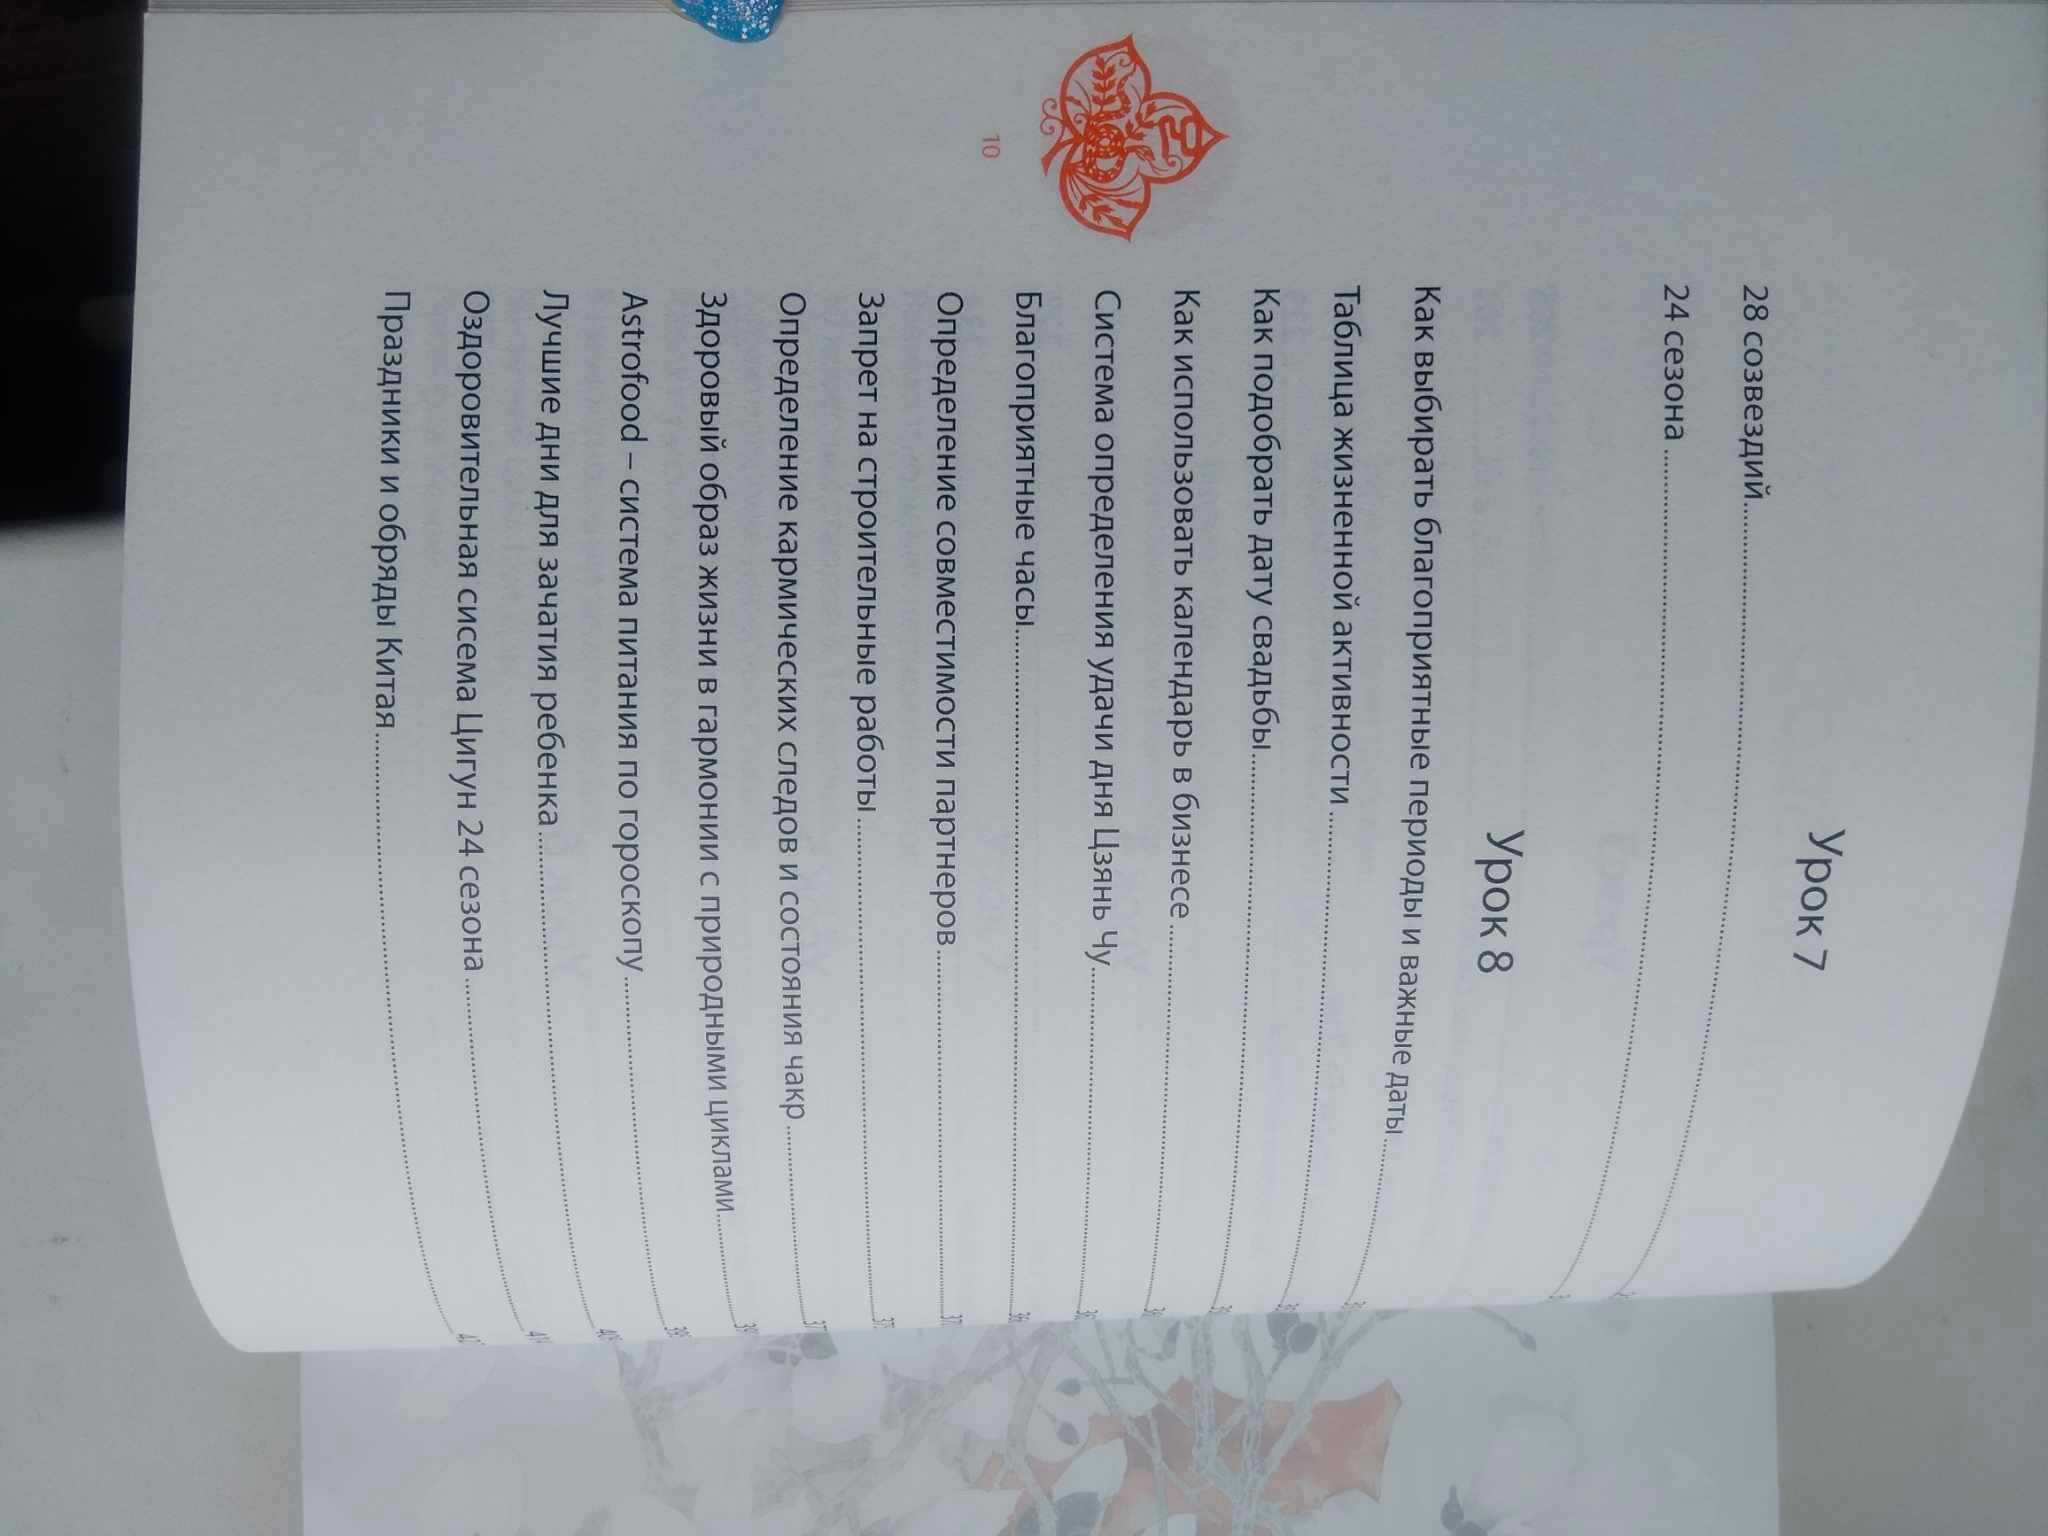 Урок 7
28 созвездий
24 сезона
Урок 8
Как выбирать благоприятные периоды и важные даты
Таблица жизненной активности
Как подобрать дату свадьбы
Как использовать календарь в бизнесе
Система определения удачи дня Цзянь Чу
Благоприятные часы
Определение совместимости партнеров
Запрет на строительные работы
Определение кармических следов и состояния чакр
Здоровый образ жизни в гармонии с природными циклами
Astrofood – система питания по гороскопу
Лучшие дни для зачатия ребенка
Оздоровительная сисема Цигун 24 сезона
Праздники и обряды Китая
10